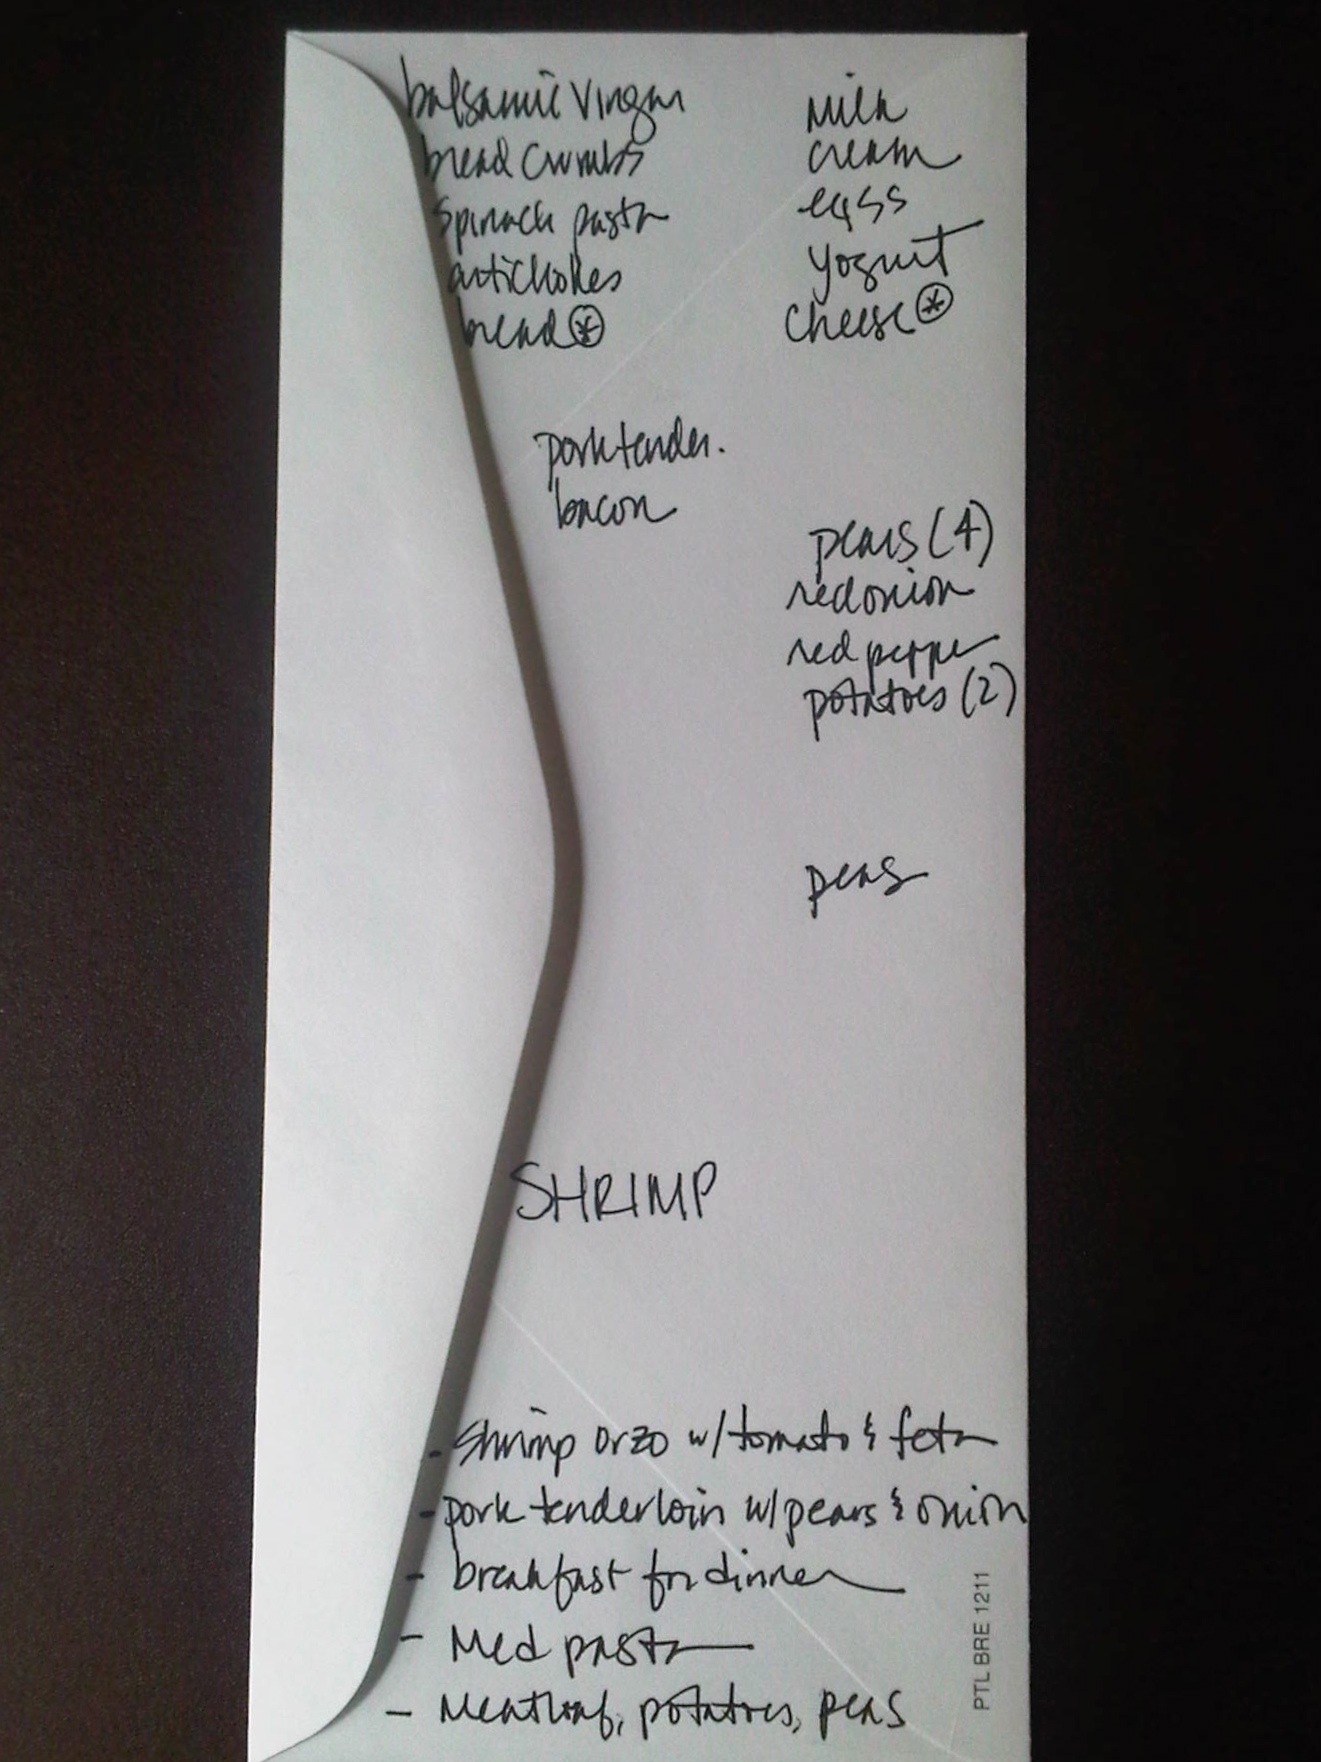 balsamic vingar
bread crumbs
spinach pasta
artichokes
bread *
milk
cream
eggs
yogurt
cheese *
pork tender.
bacon
pears (4)
red onion
red pepper
potatoes (2)
peas
SHRIMP
- shrimp orzo w/ tomato & feta
- pork tenderloin w/ pears & onion
- breakfast for dinner
- Med pasta
- Meatloaf, potatoes, peas
PTL BRE 1211